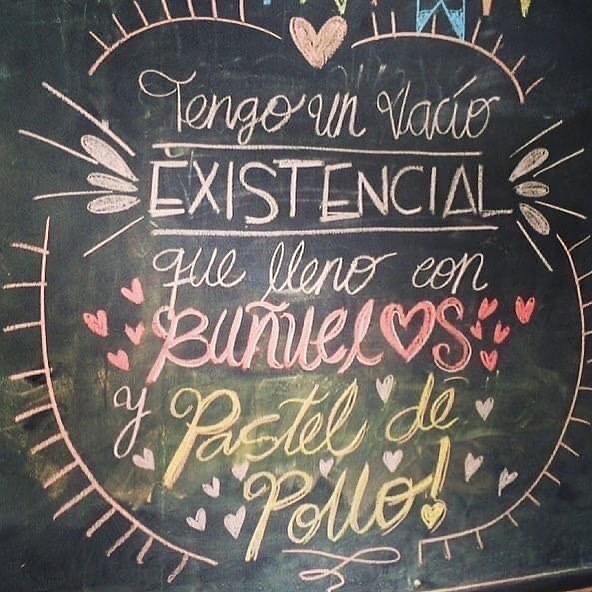 Tengo un Vacío
EXISTENCIAL
que lleno con
BUÑUELOS
y Pastel de
Pollo!